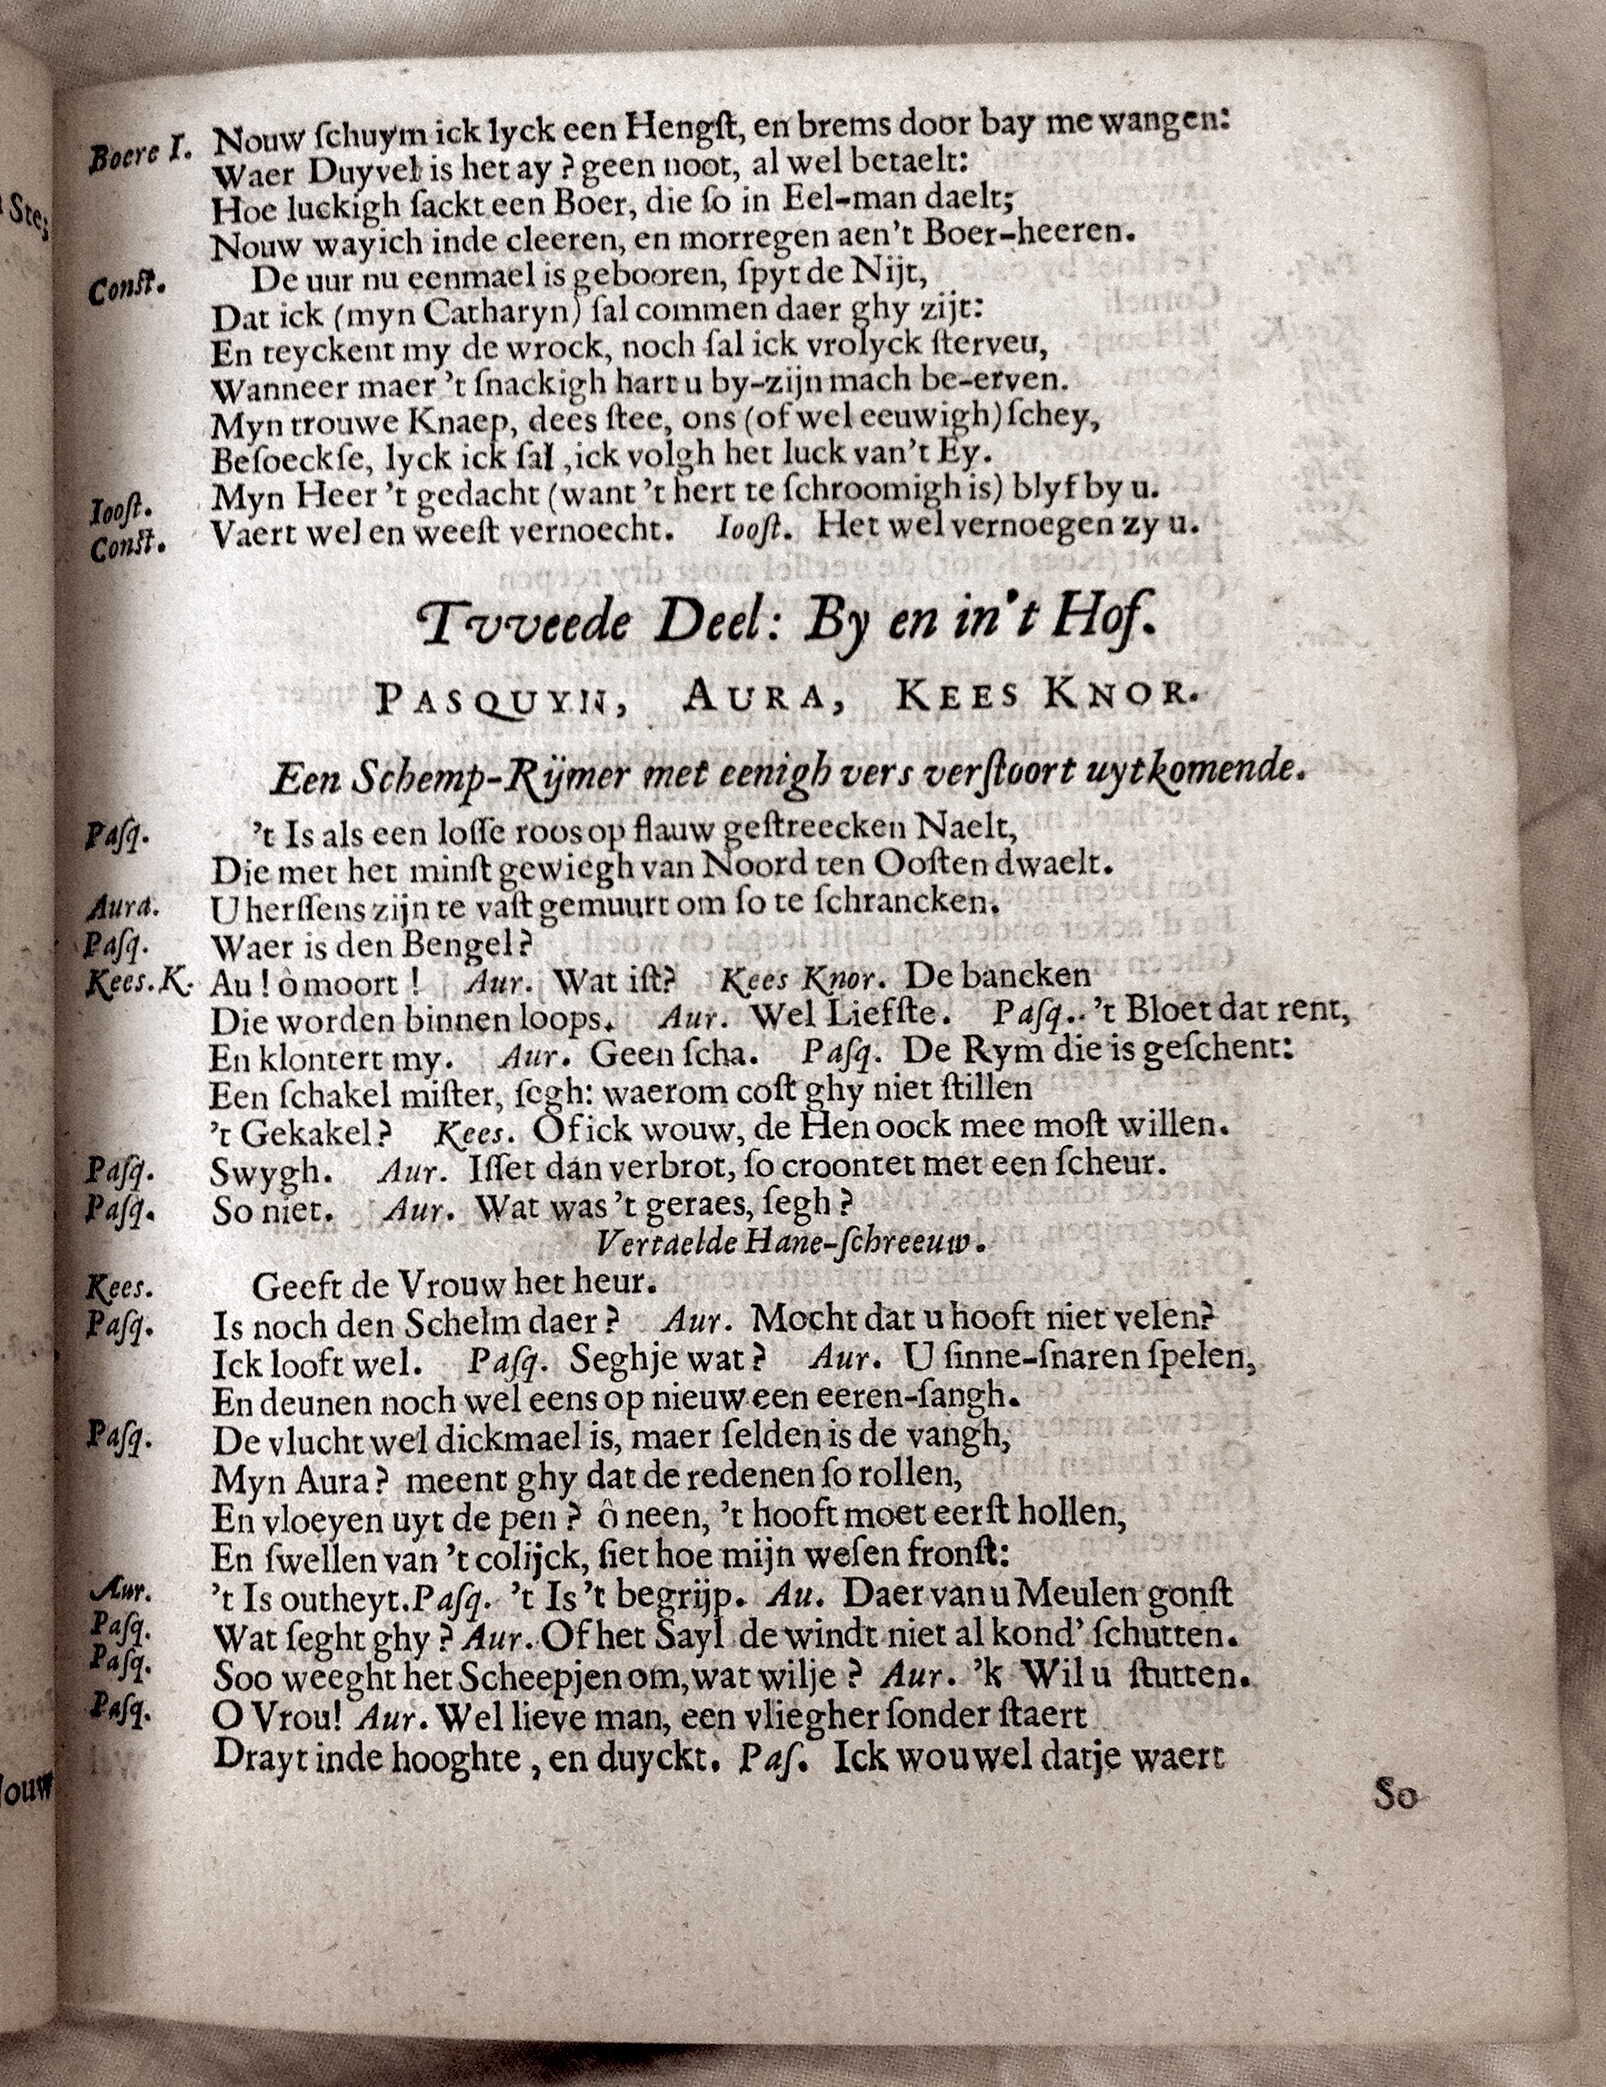 Boere I. Nouw ſchuym ick lyck een Hengſt, en brems door bay me wangen:
Waer Duyvel is het ay ? geen noot, al wel betaelt:
Hoe luckigh ſackt een Boer, die ſo in Eel-man daelt;
Nouw wayich inde cleeren, en morregen aen't Boer-heeren.
Conſt. De uur nu eenmael is gebooren, ſpyt de Nijt,
Dat ick (myn Catharyn) ſal commen daer ghy zijt:
En teyckent my de wrock, noch ſal ick vrolyck ſterveu,
Wanneer maer 't ſnackigh hart u by-zijn mach be-erven.
Myn trouwe Knaep, dees ſtee, ons (of wel eeuwigh) ſchey,
Beſoeckſe, lyck ick ſal ,ick volgh het luck van't Ey.
Iooſt. Myn Heer 't gedacht (want 't hert te ſchroomigh is) blyf by u.
Conſt. Vaert wel en weeſt vernoecht. Iooſt. Het wel vernoegen zy u.
Tvveede Deel: By en in't Hof.
PASQUYN, AURA, KEES KNOR.
Een Schemp-Rijmer met eenigh vers verſtoort uytkomende.
Paſq. 't Is als een loſſe roos op flauw geſtreecken Naelt,
Die met het minſt gewiegh van Noord ten Ooſten dwaelt.
Aura. U herſſens zijn te vaſt gemuurt om ſo te ſchrancken.
Paſq. Waer is den Bengel?
Kees.K. Au ! ô moort ! Aur. Wat iſt? Kees Knor. De bancken
Die worden binnen loops. Aur. Wel Liefſte. Paſq.. 't Bloet dat rent,
En klontert my. Aur. Geen ſcha. Paſq. De Rym die is geſchent:
Een ſchakel miſter, ſegh: waerom coſt ghy niet ſtillen
't Gekakel? Kees. Of ick wouw, de Hen oock mee moſt willen.
Paſq. Swygh. Aur. Iſſet dan verbrot, ſo croontet met een ſcheur.
Paſq. So niet. Aur. Wat was 't geraes, ſegh ?
Vertaelde Hane-ſchreeuw.
Kees. Geeft de Vrouw het heur.
Paſq. Is noch den Schelm daer ? Aur. Mocht dat u hooft niet velen?
Ick looft wel. Paſq. Seghje wat ? Aur. U ſinne-ſnaren ſpelen,
En deunen noch wel eens op nieuw een eeren-ſangh.
Paſq. De vlucht wel dickmael is, maer ſelden is de vangh,
Myn Aura ? meent ghy dat de redenen ſo rollen,
En vloeyen uyt de pen ? ô neen, 't hooft moet eerſt hollen,
En ſwellen van 't colijck, ſiet hoe mijn weſen fronſt:
Aur. 't Is outheyt. Paſq. 't Is 't begrijp. Au. Daer van u Meulen gonſt
Paſq. Wat ſeght ghy ? Aur. Of het Sayl de windt niet al kond' ſchutten.
Paſq. Soo weeght het Scheepjen om, wat wilje ? Aur. 'k Wil u ſtutten.
Paſq. O Vrou! Aur. Wel lieve man, een vliegher ſonder ſtaert
Drayt inde hooghte , en duyckt. Paſ. Ick wou wel datje waert
So